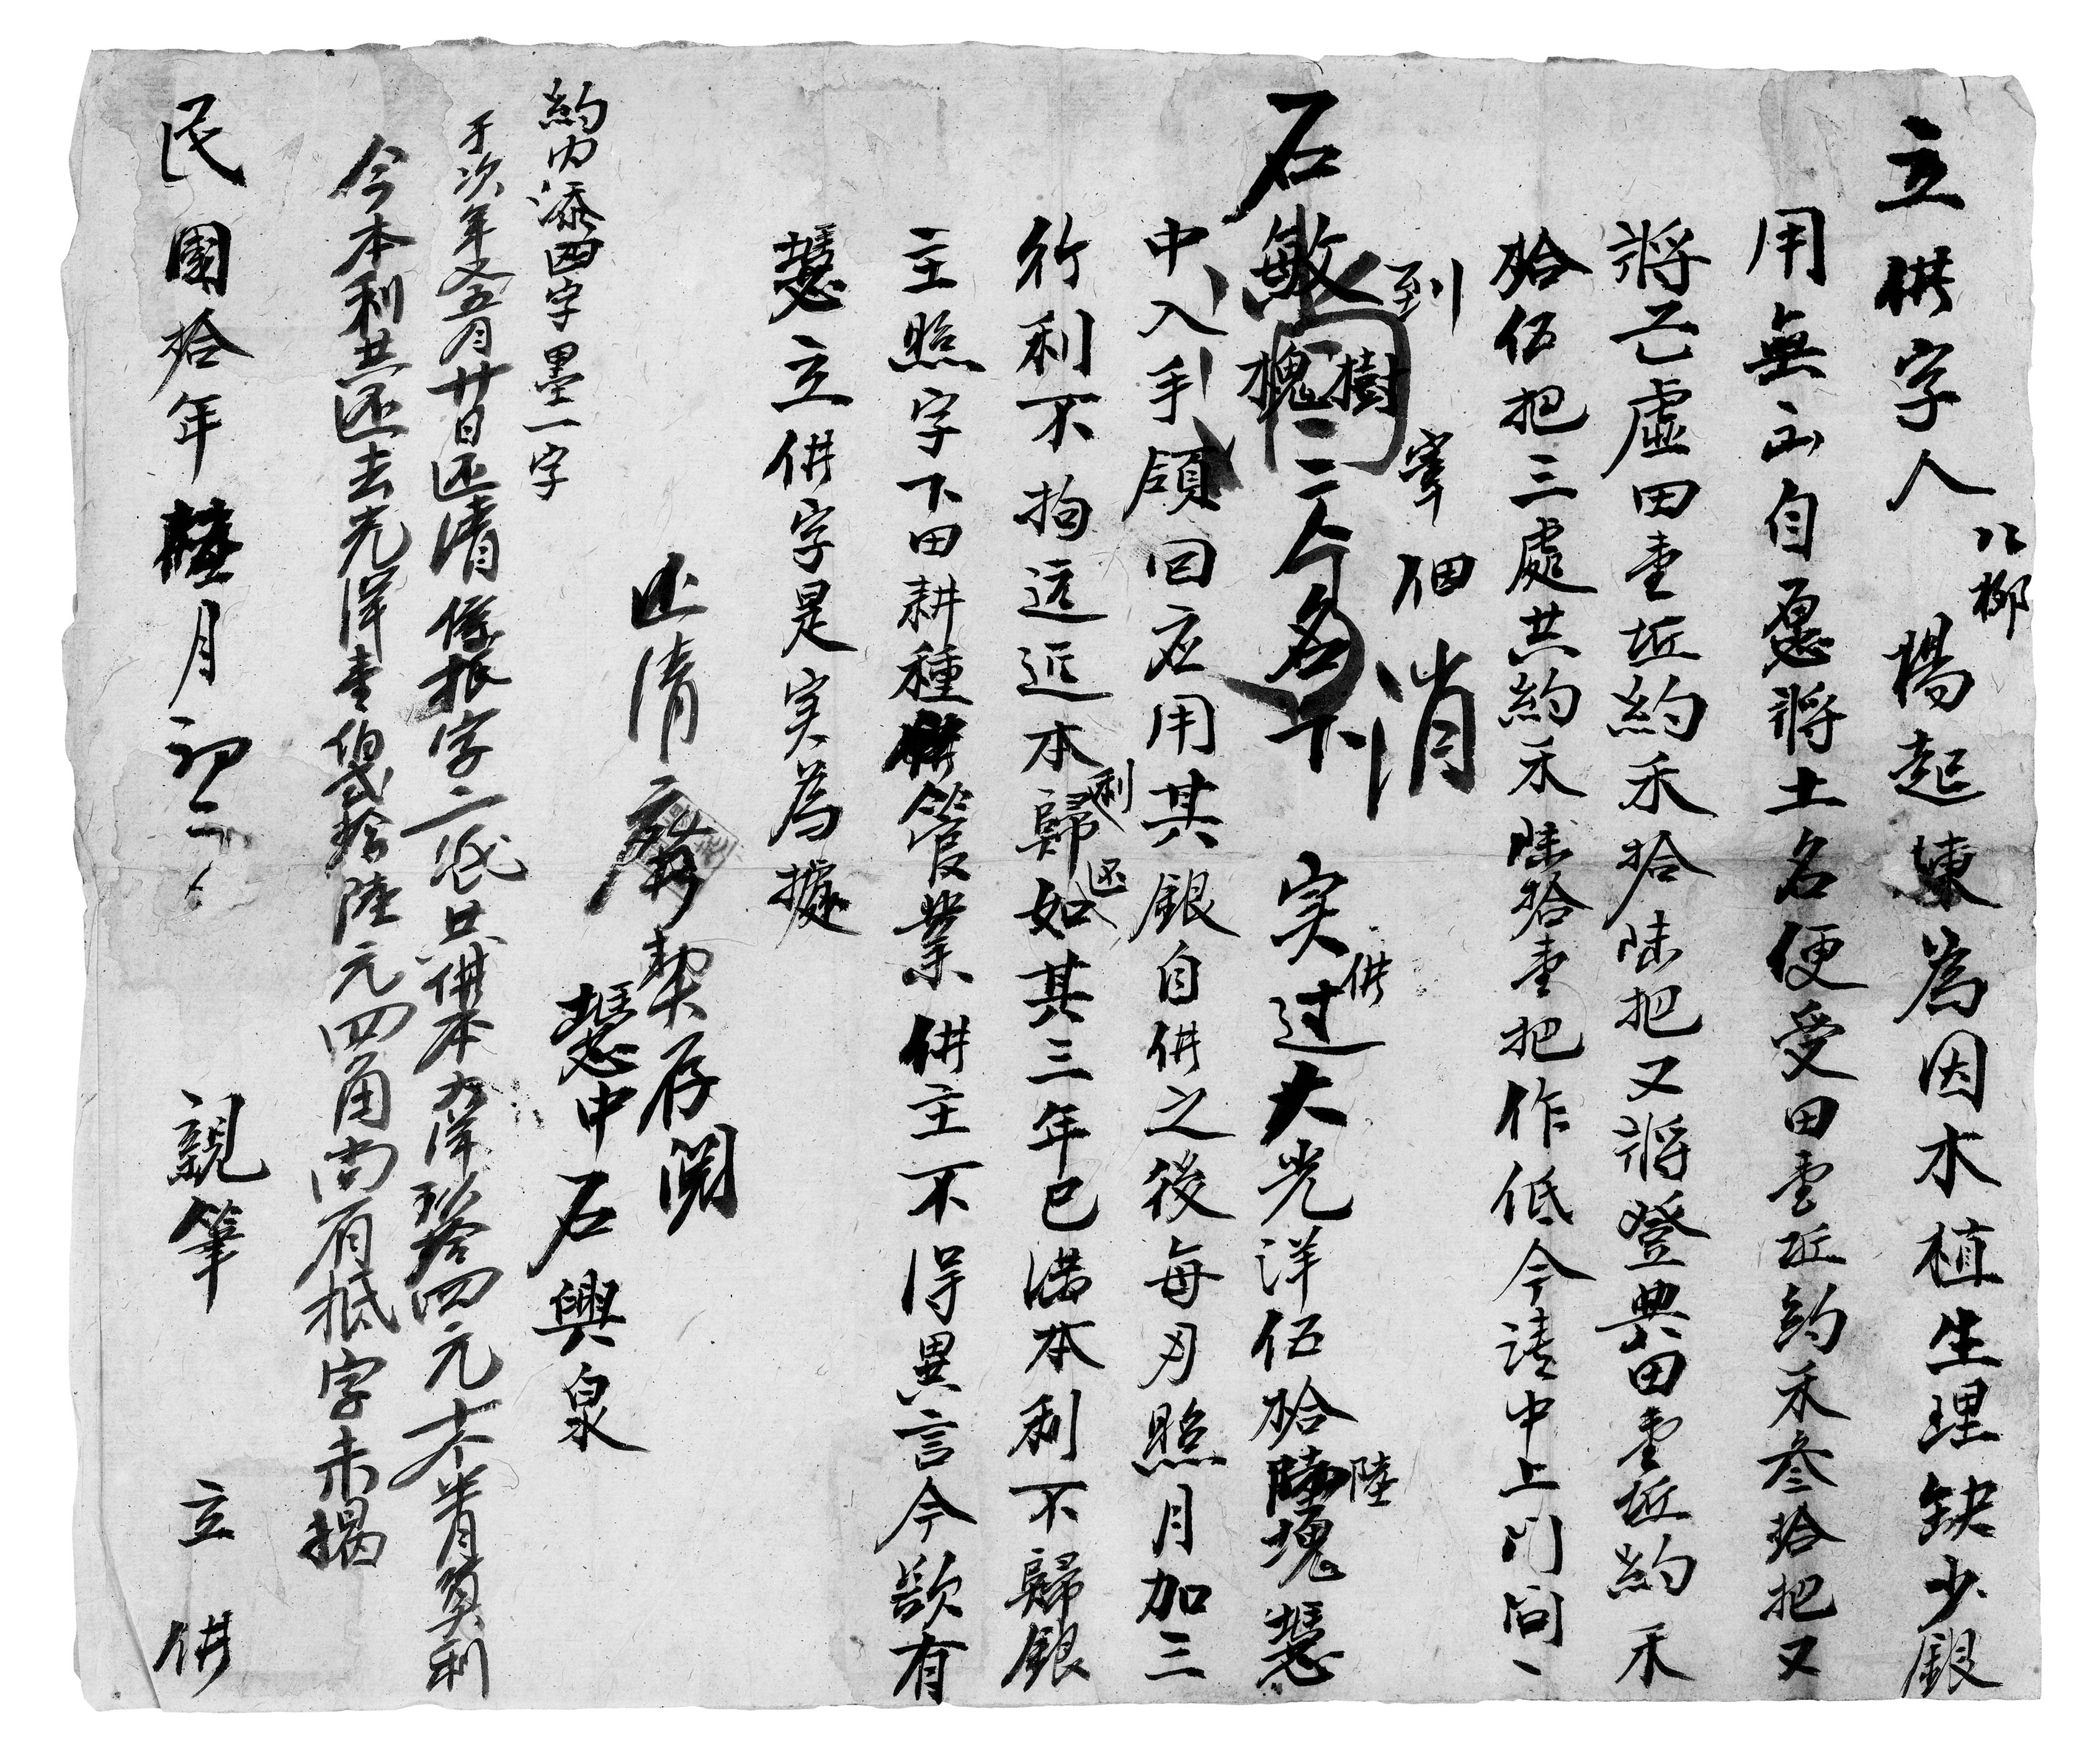 立供字人八柳楊起棟為因木植生理缺少銀
用無心自愿將土名便受田壹坵約禾叁拾把又
將芒虛田壹坵約禾拾陸把又將登典田壹坵約禾
拾伍把三處共約禾陸拾壹把作低今請中上門問
到
石敏樹槐二人名下实过供大光洋伍拾陸塊憑
中入手領回应用其銀自供之後每月照月加三
行利不拘远近本利歸还如其三年已满本利不歸銀
主照字下田耕種管業供主不得異言今欲有
憑立供字是实為據
还清廢契存閱
憑中石興泉
約内添四字墨一字
于次年又五月廿日还清 字二紙共供本光洋 四元 算利
今本利共还去光洋壹佰貳拾陸元四角尚有抵字未揭
民國拾年陸月初二 親筆 立供